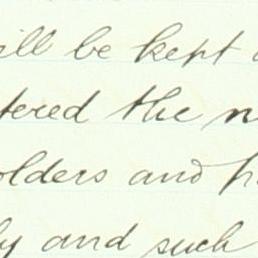 ill be kept
tered the n
olders and h
by and such